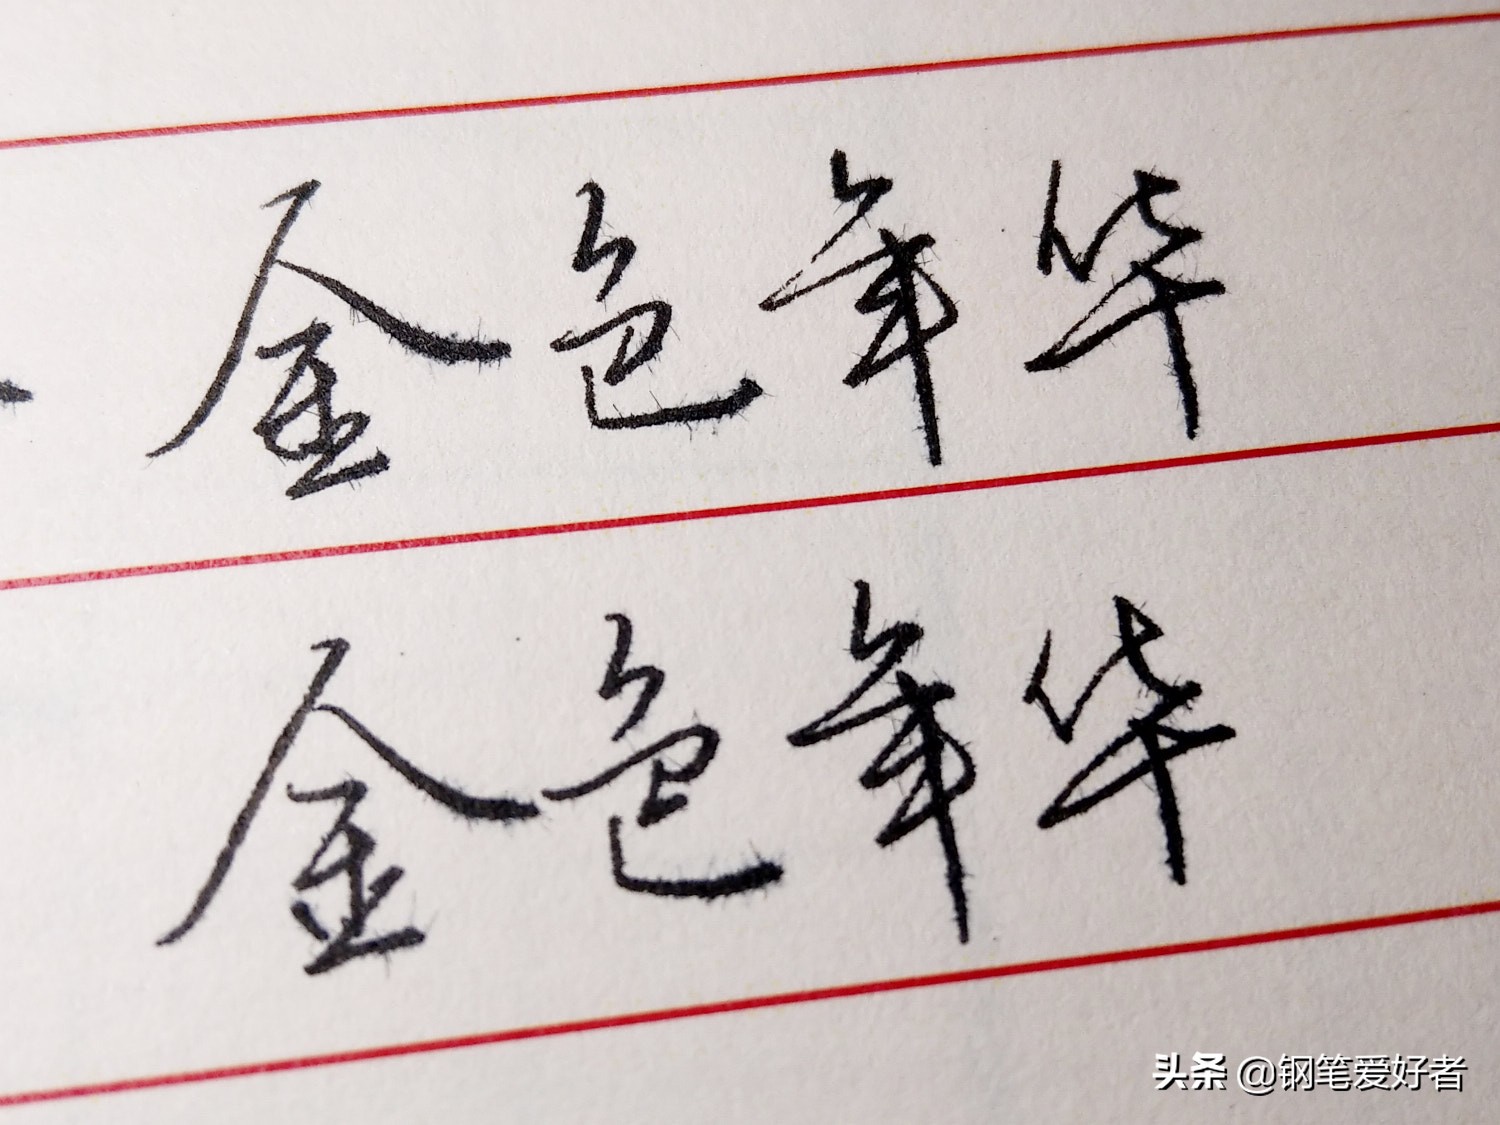 金色年华
金色年华
头条 @钢笔爱好者